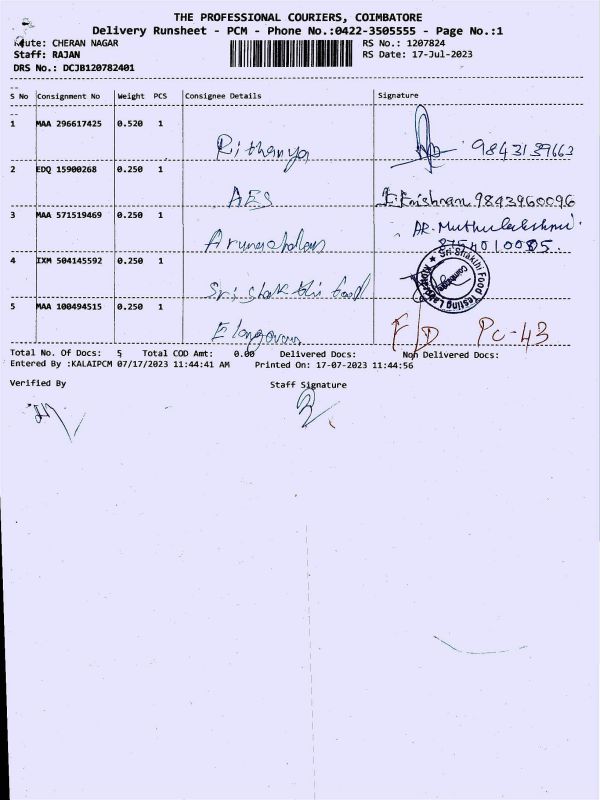 THE PROFESSIONAL COURIERS, COIMBATORE
Delivery Runsheet - PCM - Phone No.:0422-3505555 - Page No.:1
Route: CHERAN NAGAR RS No.: 1207824
Staff: RAJAN RS Date: 17-Jul-2023
DRS No.: DCJB120782401
S No Consignment No Weight PCS Consignee Details Signature
1 MAA 296617425 0.520 1
Rithanya 9843139663
2 EDQ 15900268 0.250 1
AES I. Krishnan 9843960096
3 MAA 571519469 0.250 1 AR. Muthulakshmi.
Arunachalam
4 IXM 504145592 0.250 1 Sri Shakthi Food Testing
Sri Shakthi food
5 MAA 100494515 0.250 1
Elangovan F/D PC-43
Total No. Of Docs: 5 Total COD Amt: 0.00 Delivered Docs: Non Delivered Docs:
Entered By :KALAIPCM 07/17/2023 11:44:41 AM Printed On: 17-07-2023 11:44:56
Verified By Staff Signature